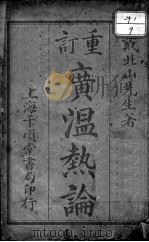 戴北山先生著
重訂
廣溫熱論
上海千頃堂書局印行
9